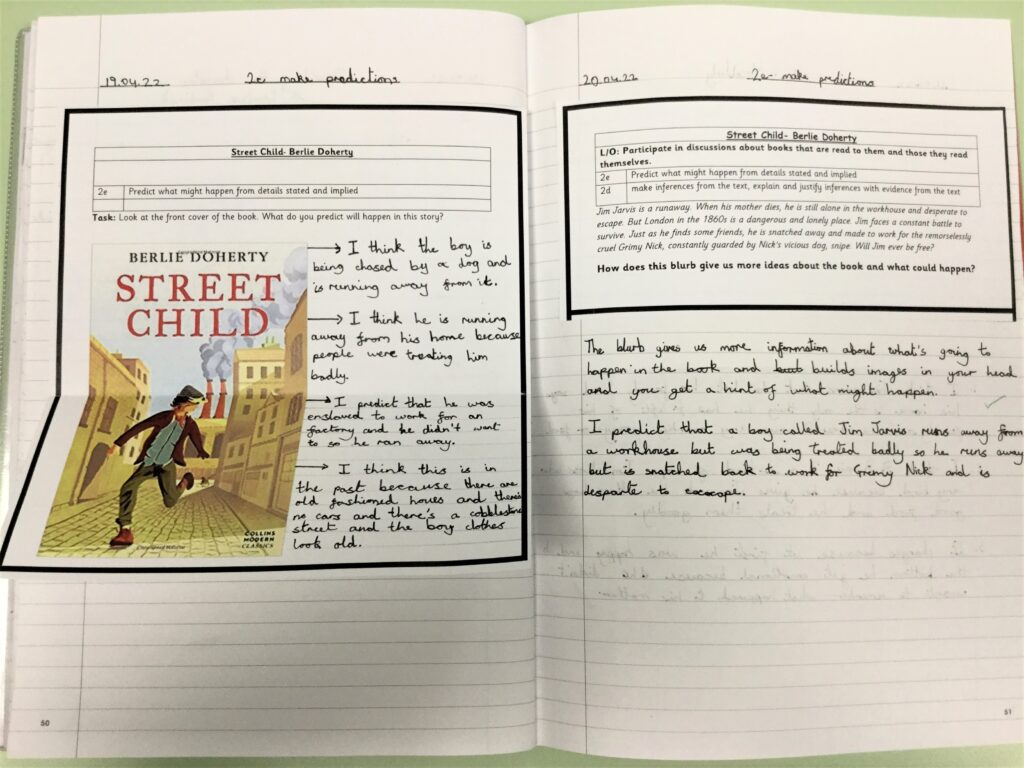 19.04.22 2e make predictions
Street Child- Berlie Doherty
2e Predict what might happen from details stated and implied
Task: Look at the front cover of the book. What do you predict will happen in this story?
BERLIE DOHERTY
STREET
CHILD
COLLINS
MODERN
CLASSICS
→ I think the boy is
being chased by a dog and
is running away from it.
→ I think he is running
away from his home because
people were treating him
badly.
→ I predict that he was
enslaved to work for an
factory and he didn't want
to so he ran away.
→ I think this is in
the past because there are
old fashioned houes and there's
no cars and there's a cobblestone
street and the boy clothes
looks old.
50
20.04.22 2e make predictions
Street Child- Berlie Doherty
L/O: Participate in discussions about books that are read to them and those they read
themselves.
2e Predict what might happen from details stated and implied
2d make inferences from the text, explain and justify inferences with evidence from the text
Jim Jarvis is a runaway. When his mother dies, he is still alone in the workhouse and desperate to
escape. But London in the 1860s is a dangerous and lonely place. Jim faces a constant battle to
survive. Just as he finds some friends, he is snatched away and made to work for the remorselessly
cruel Grimy Nick, constantly guarded by Nick's vicious dog, snipe. Will Jim ever be free?
How does this blurb give us more ideas about the book and what could happen?
The blurb gives us more information about what's going to
happen in the book and builds images in your head
and you get a hint of what might happen.
I predict that a boy called Jim Jarvis runs away from
a workhouse but was being treated badly so he runs away
but is snatched back to work for Grimy Nick and is
desparte to excscape.
51